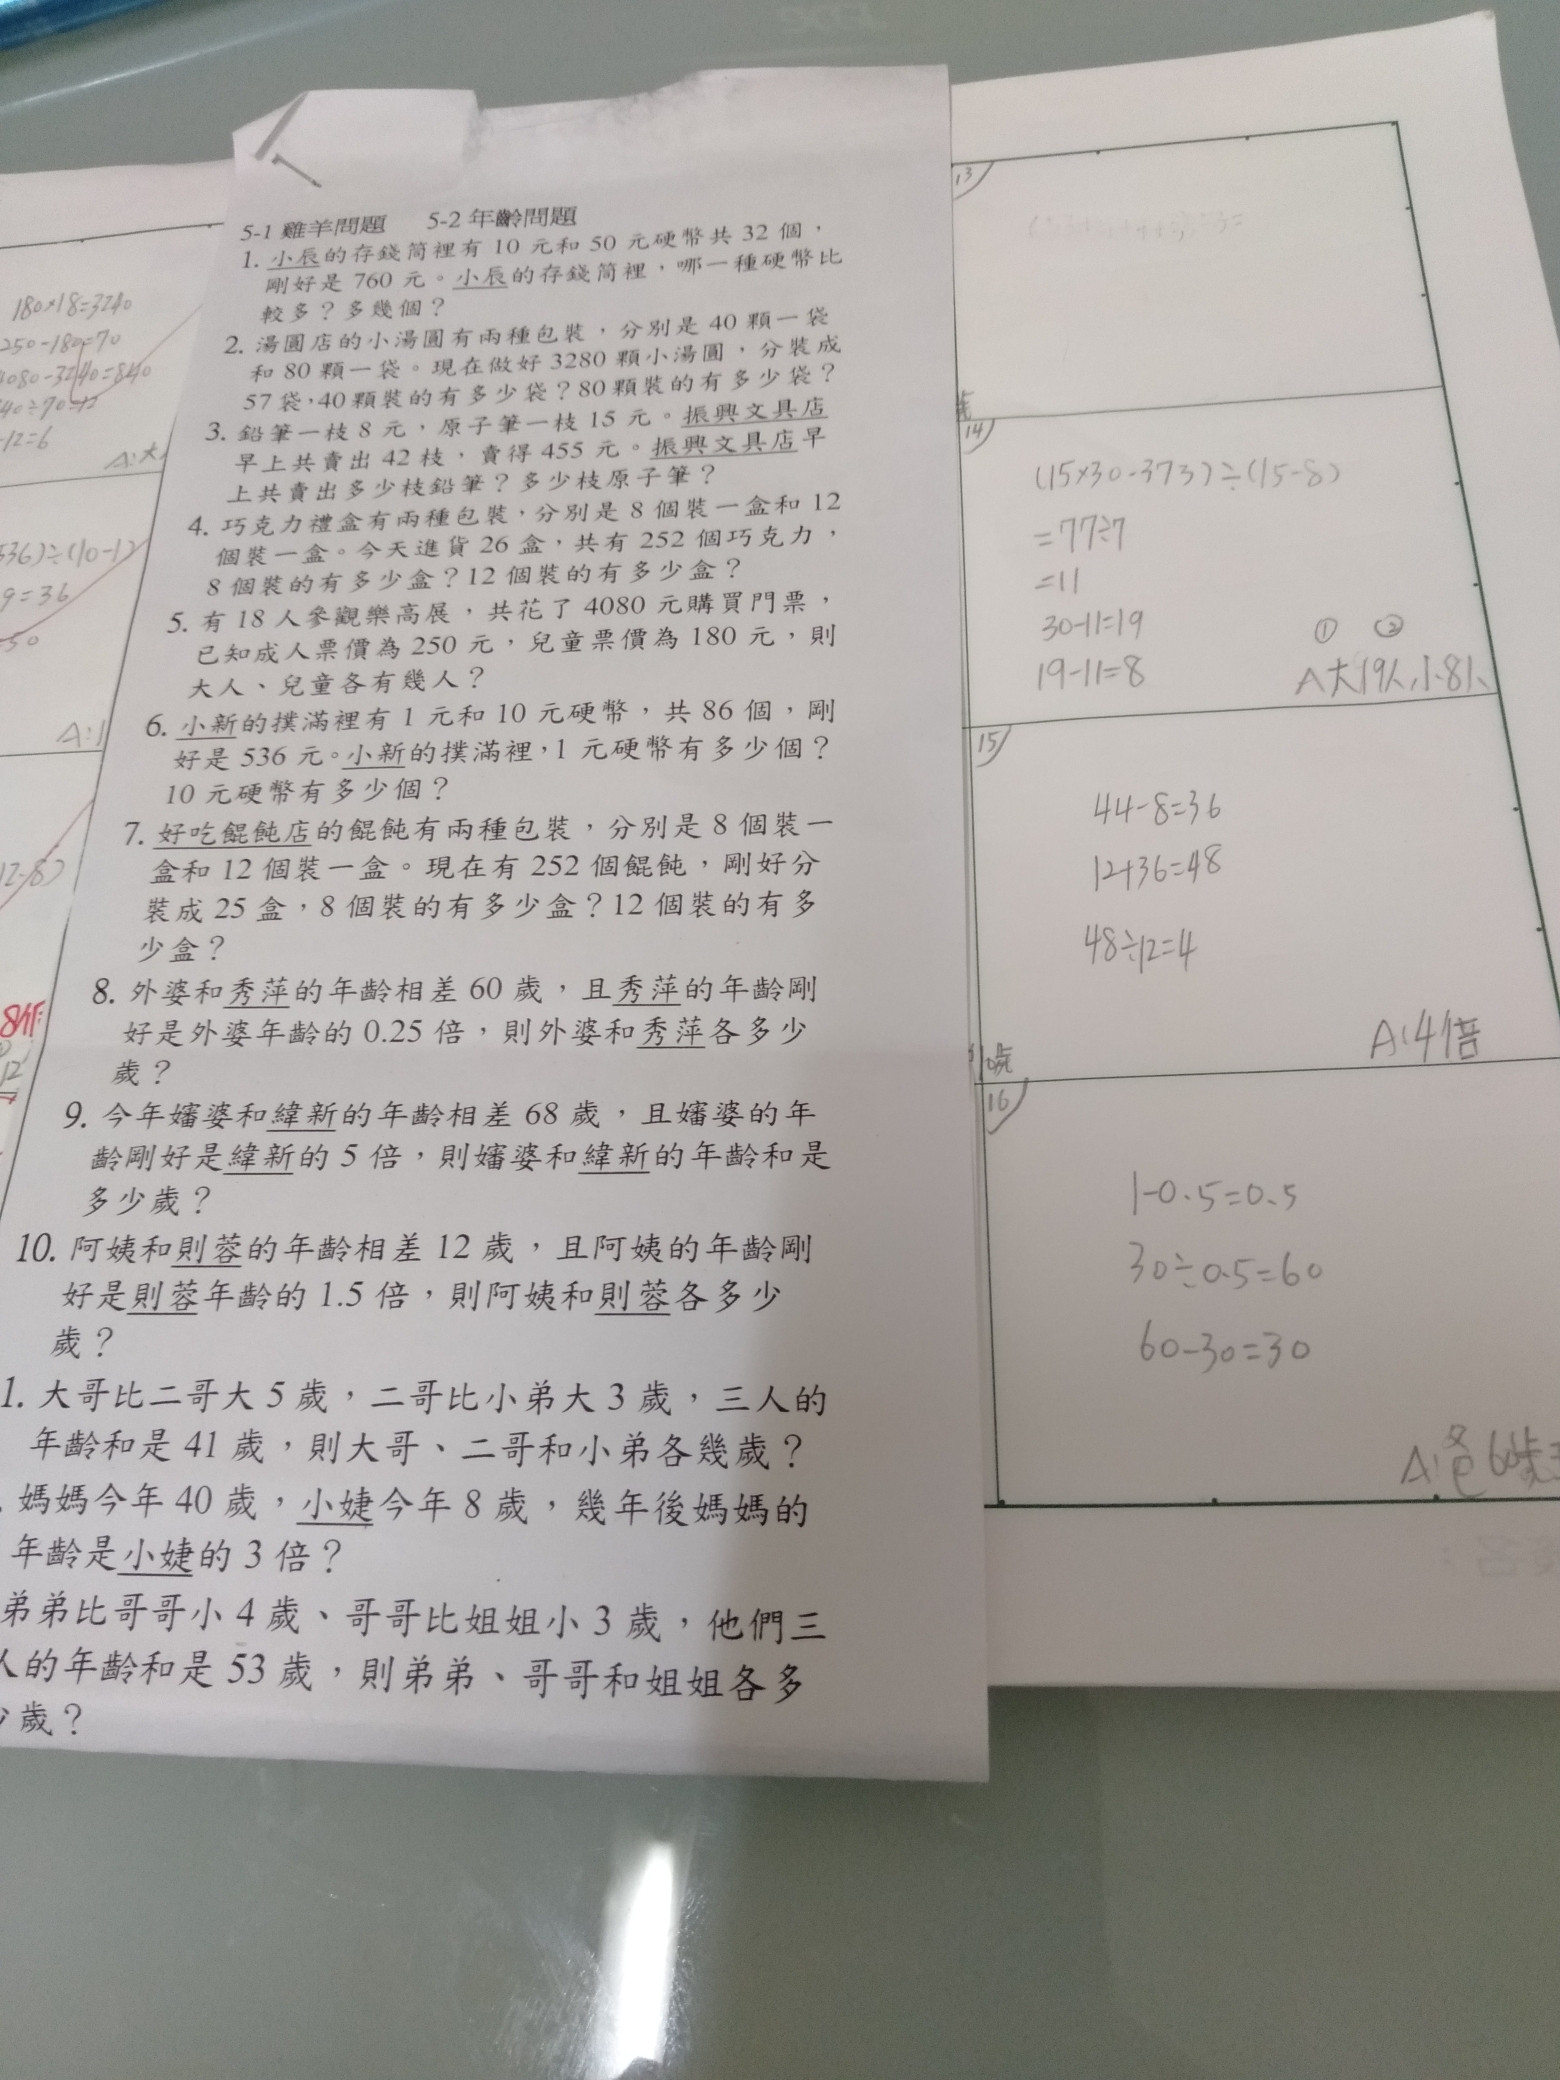 5-1 雞羊問題 5-2 年齡問題
1. 小辰的存錢筒裡有 10 元和 50 元硬幣共 32 個，
剛好是 760 元。小辰的存錢筒裡，哪一種硬幣比
較多？多幾個？
2. 湯圓店的小湯圓有兩種包裝，分別是 40 顆一袋
和 80 顆一袋。現在做好 3280 顆小湯圓，分裝成
57 袋，40 顆裝的有多少袋？80 顆裝的有多少袋？
3. 鉛筆一枝 8 元，原子筆一枝 15 元。振興文具店
早上共賣出 42 枝，賣得 455 元。振興文具店早
上共賣出多少枝鉛筆？多少枝原子筆？
4. 巧克力禮盒有兩種包裝，分別是 8 個裝一盒和 12
個裝一盒。今天進貨 26 盒，共有 252 個巧克力，
8 個裝的有多少盒？12 個裝的有多少盒？
5. 有 18 人參觀樂高展，共花了 4080 元購買門票，
已知成人票價為 250 元，兒童票價為 180 元，則
大人、兒童各有幾人？
6. 小新的撲滿裡有 1 元和 10 元硬幣，共 86 個，剛
好是 536 元。小新的撲滿裡，1 元硬幣有多少個？
10 元硬幣有多少個？
7. 好吃餛飩店的餛飩有兩種包裝，分別是 8 個裝一
盒和 12 個裝一盒。現在有 252 個餛飩，剛好分
裝成 25 盒，8 個裝的有多少盒？12 個裝的有多
少盒？
8. 外婆和秀萍的年齡相差 60 歲，且秀萍的年齡剛
好是外婆年齡的 0.25 倍，則外婆和秀萍各多少
歲？
9. 今年嬸婆和緯新的年齡相差 68 歲，且嬸婆的年
齡剛好是緯新的 5 倍，則嬸婆和緯新的年齡和是
多少歲？
10. 阿姨和則蓉的年齡相差 12 歲，且阿姨的年齡剛
好是則蓉年齡的 1.5 倍，則阿姨和則蓉各多少
歲？
1. 大哥比二哥大 5 歲，二哥比小弟大 3 歲，三人的
年齡和是 41 歲，則大哥、二哥和小弟各幾歲？
媽媽今年 40 歲，小婕今年 8 歲，幾年後媽媽的
年齡是小婕的 3 倍？
弟弟比哥哥小 4 歲、哥哥比姐姐小 3 歲，他們三
人的年齡和是 53 歲，則弟弟、哥哥和姐姐各多
歲？
180×18=3240
250-180=70
4080-3240=840
40÷70=12
-12=6
A:大
536)÷(10-1)
9=36
=50
A:1
12-8)
12
13
14
(15×30-373)÷(15-8)
=77÷7
=11
30-11=19
19-11=8
① ②
A大19人,小8人
15
44-8=36
12+36=48
48÷12=4
A:4倍
16
1-0.5=0.5
30÷0.5=60
60-30=30
A:爸60歲